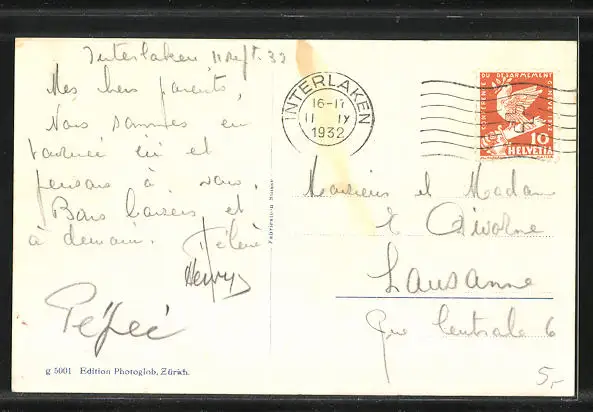 Interlaken 11 sept. 32
Mes chers parents,
Nous sommes en
tournée ici et
pensons à vous.
Bons baisers et
à demain. Hélène
Henry
INTERLAKEN
16-17
11 IX
1932
CONFERENCE DU DESARMEMENT
GENEVE 1932
10
HELVETIA
Monsieur et Madame
Divorne
Lausanne
Rue Centrale 6
Fabrication Suisse
g 5001 Edition Photoglob, Zürich.
5,-